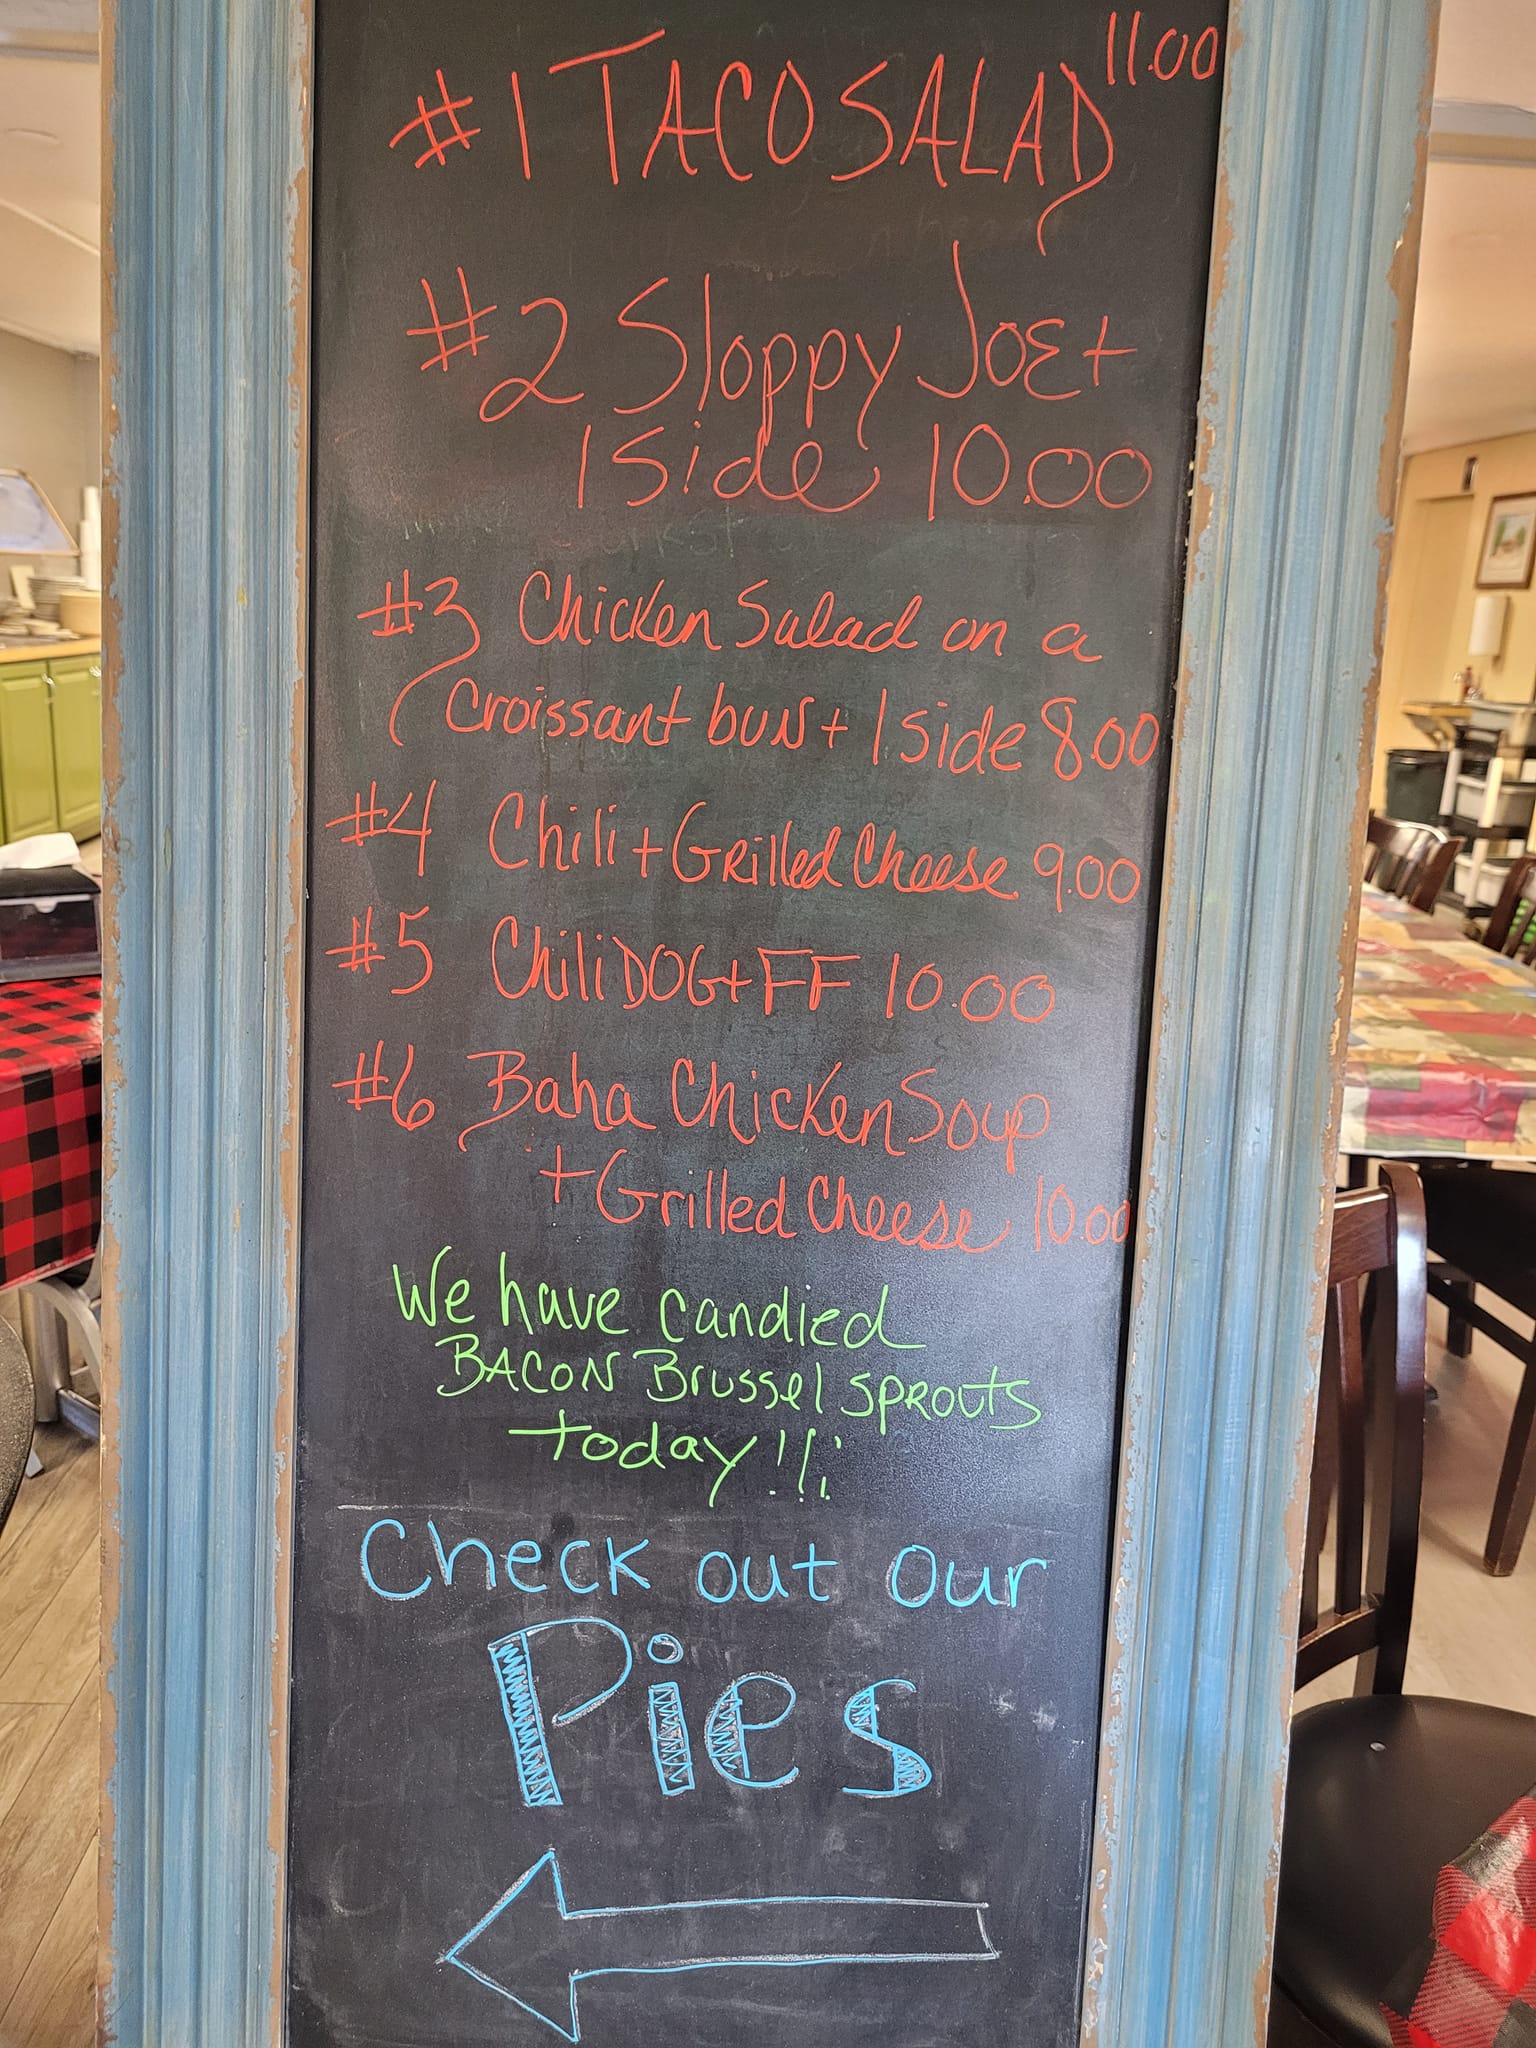 #1 TACO SALAD 11.00
#2 Sloppy JOE +
1 side 10.00
#3 Chicken Salad on a
Croissant bun + 1 side 8.00
#4 Chili + Grilled Cheese 9.00
#5 Chili DOG + FF 10.00
#6 Baha Chicken Soup
+ Grilled Cheese 10.00
We have candied
BACON Brussel sprouts
today!!!
Check out our
Pies